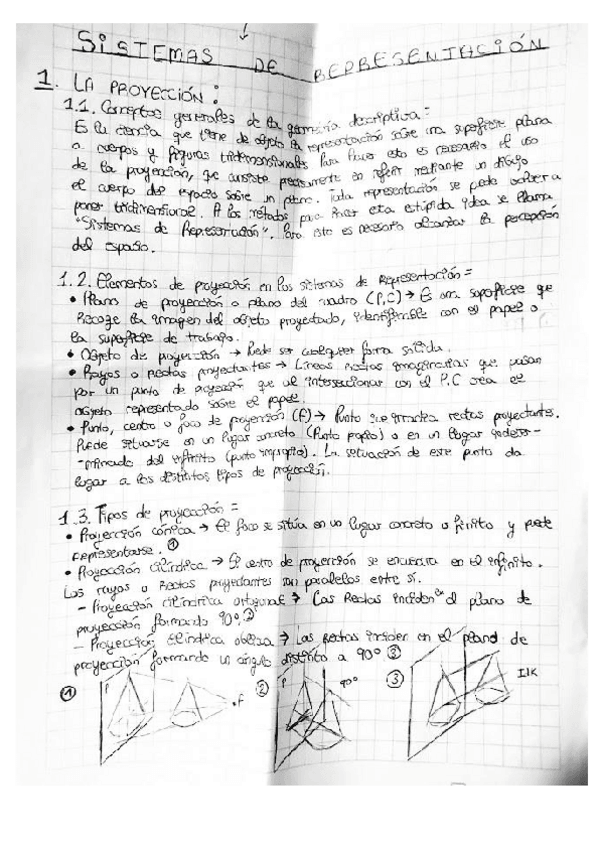 SISTEMAS DE REPRESENTACIÓN
1. LA PROYECCIÓN:
1.1. Conceptos generales de la geometría descriptiva=
Es la ciencia que tiene de objeto la representación sobre una superficie plana
a cuerpos y figuras tridimensionales. Para hacer esto es necesario el uso
de la proyección, que consiste precisamente en referir mediante un dibujo
el cuerpo del espacio sobre un plano. Toda representación se puede volver a
poner tridimensional. A los métodos para hacer esta estúpida idea se llama
"Sistemas de Representación". Para esto es necesario alcanzar la percepción
del espacio.
1.2. Elementos de proyección en los sistemas de Representación=
• Plano de proyección o plano del cuadro (P.C) → Es una superficie que
Recoge la imagen del objeto proyectado, identificable con el papel o
la superficie de trabajo.
• Objeto de proyección → Puede ser cualquier forma sólida.
• Rayos o rectas proyectantes → Líneas rectas imaginarias que pasan
por un punto de proyección que al interseccionar con el P.C crea el
objeto representado sobre el papel.
• Punto, centro o foco de proyección (F) → Punto que rectas proyectantes.
Puede situarse en un lugar concreto (Punto propio) o en un lugar
del infinito (punto impropio). La situación de este punto da
lugar a los distintos tipos de proyección.
1.3. Tipos de proyección=
• Proyección cónica → El foco se sitúa en un lugar concreto o finito y puede
representarse. ①
• Proyección cilíndrica → El centro de proyección se encuentra en el infinito.
Los rayos o Rectas proyectantes son paralelos entre sí.
- Proyección cilíndrica ortogonal → Las Rectas inciden en el plano de
proyección formando 90º. ②
- Proyección cilíndrica oblicua → Las Rectas inciden en el plano de
proyección formando un ángulo distinto a 90º ③
① P F ② P 90º ③